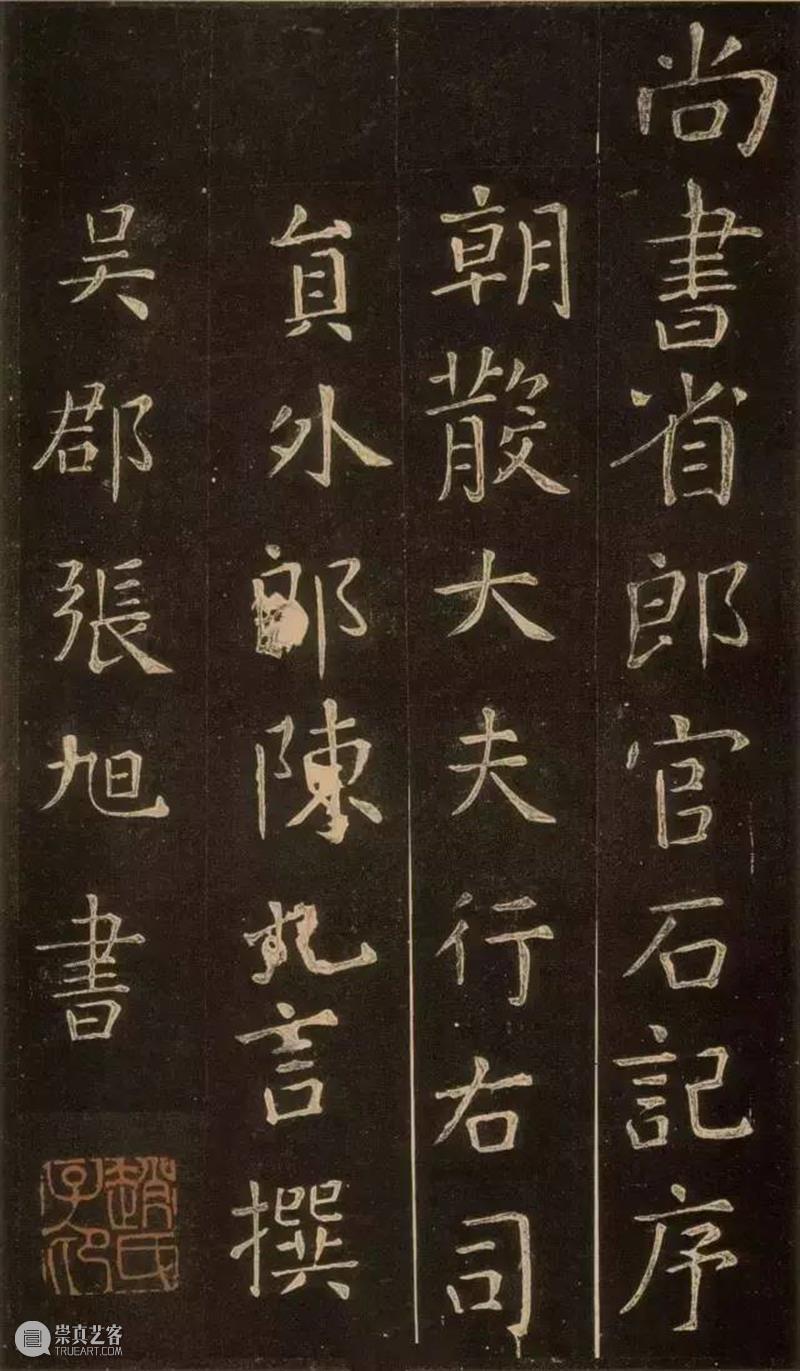 尚書省郎官石記序
朝散大夫行右司
貟外郎陳九言撰
吴郡張旭書
趙氏
子卬
崇真艺客
TRUEART.COM